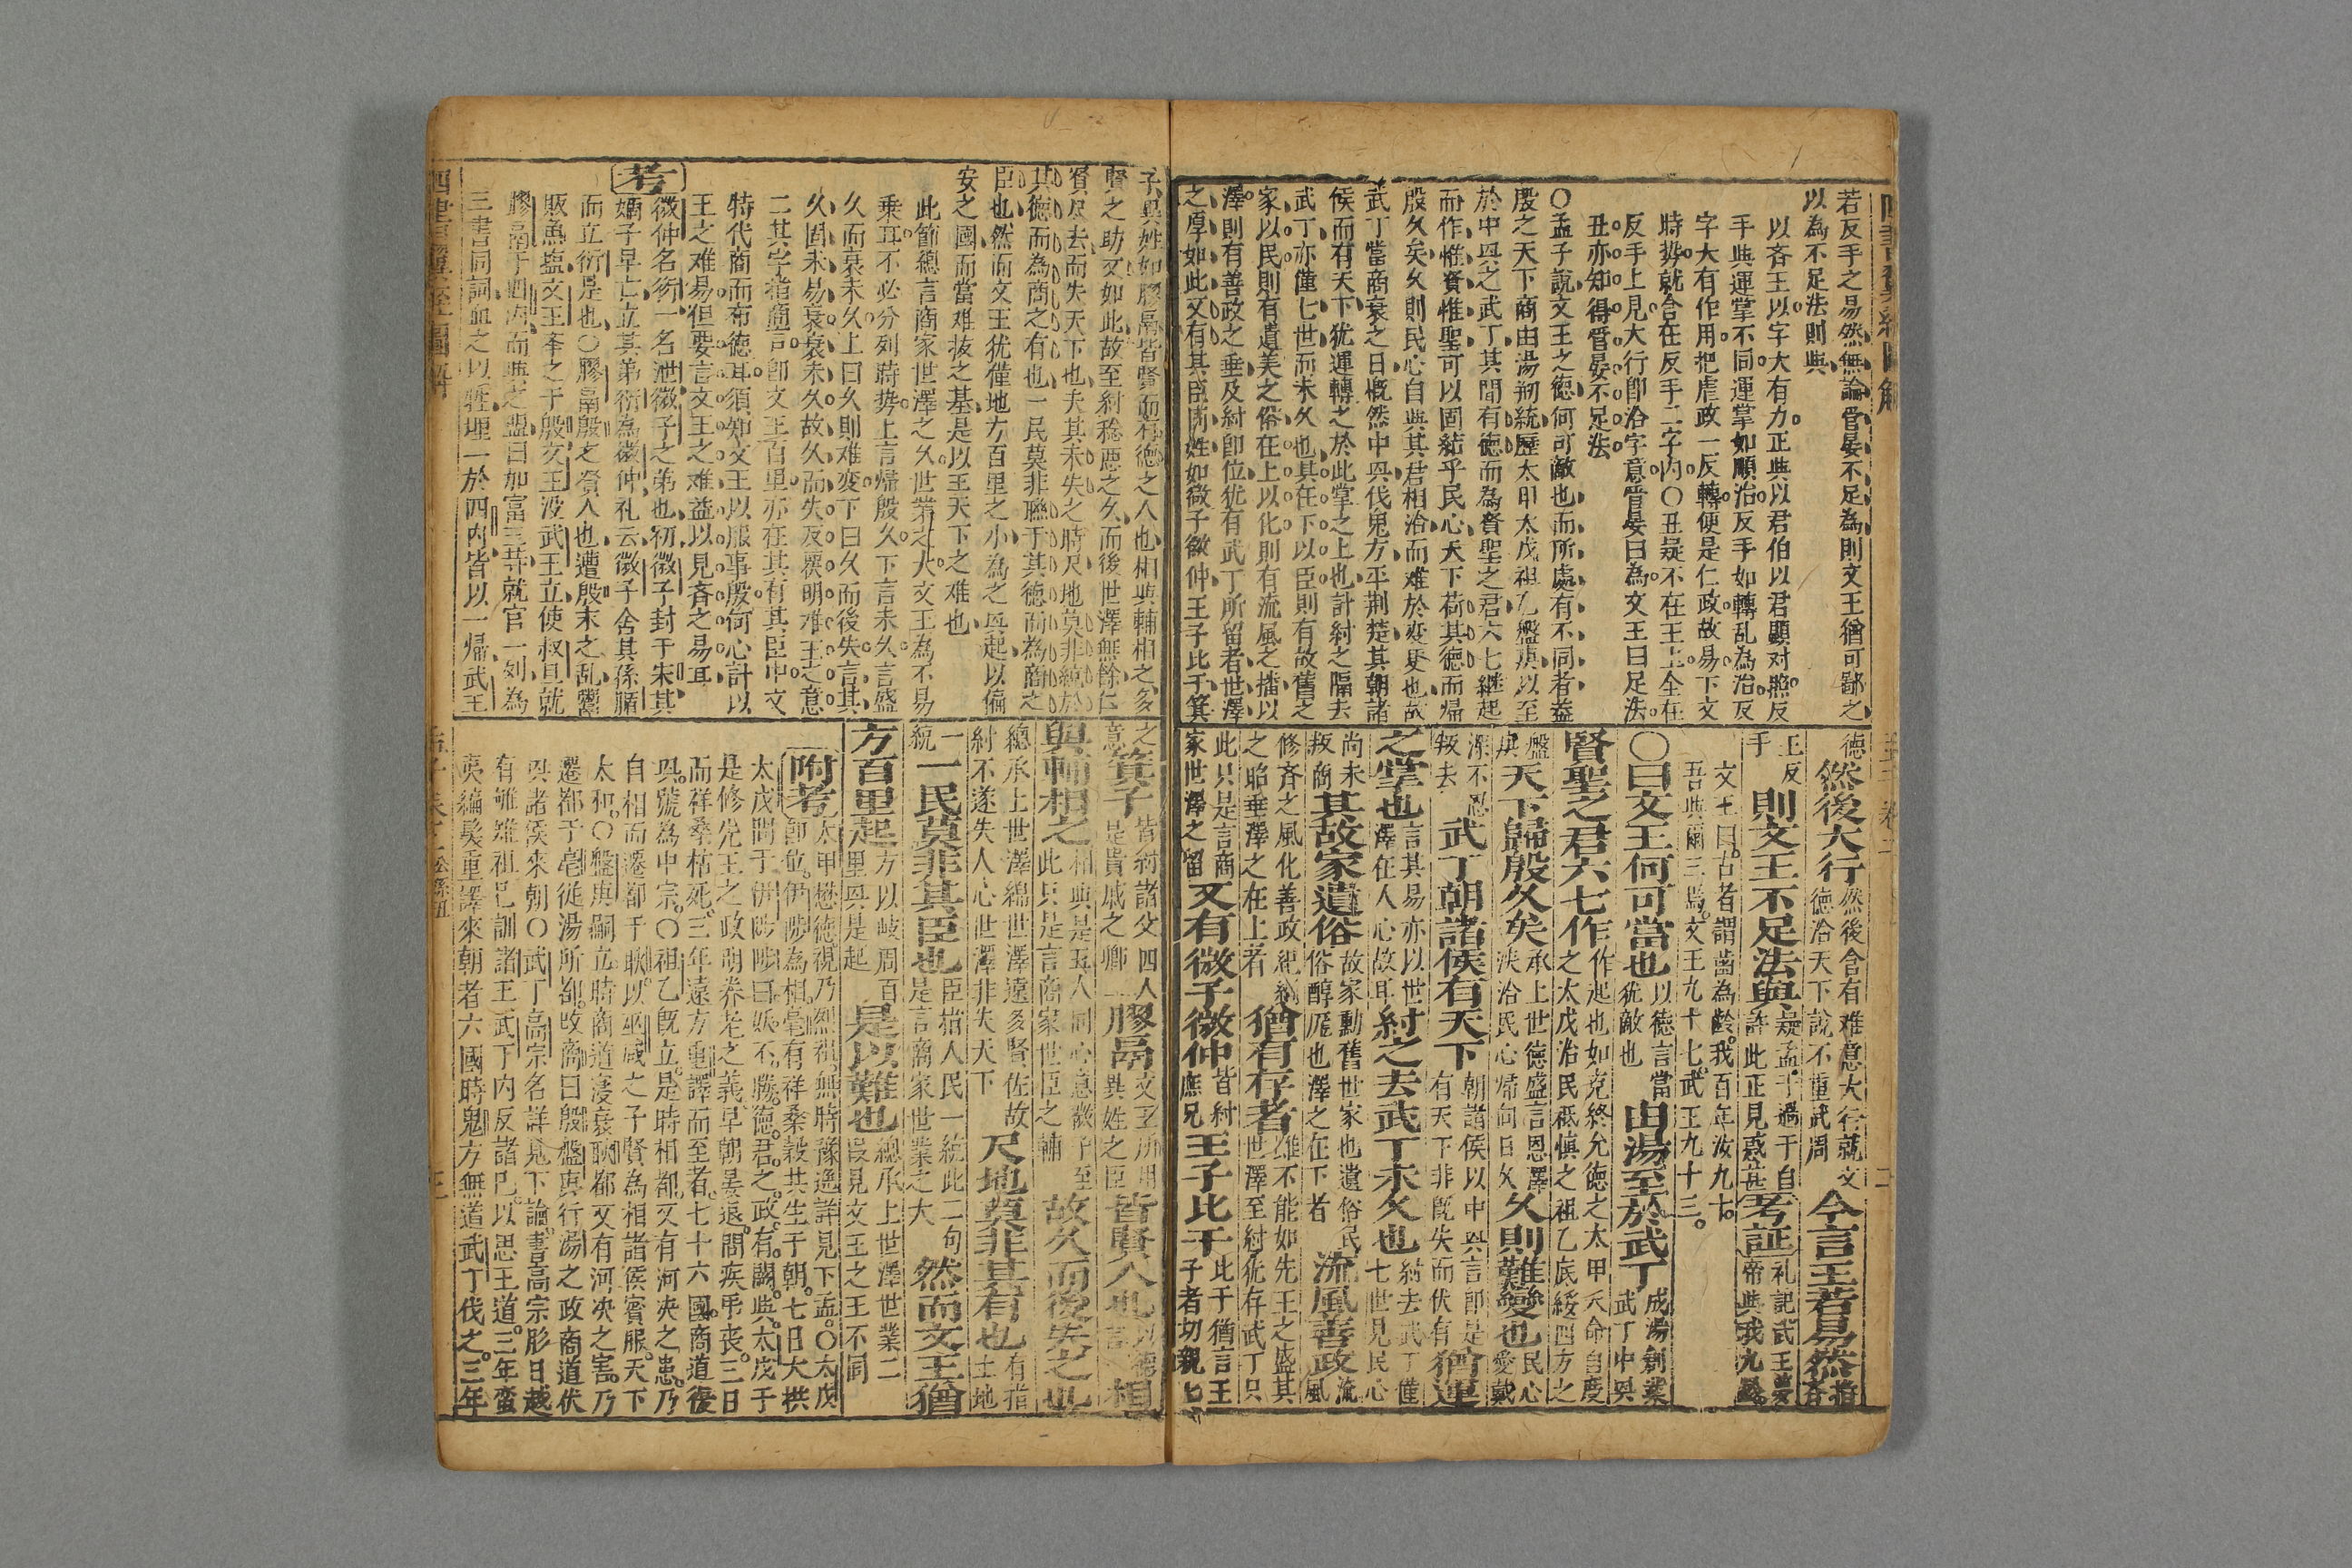 若反手之易然無論管晏不足為則文王猶可鄙之
以為不足法則與
以斉王以字大有力正與以君伯以君顯对照反
手與運掌不同運掌如順治反手如轉乱為治反
字大有作用把虐政一反轉便是仁政故易下文
時势就含在反手二字內○丑疑不在王上全在
反手上見大行即洽字意管晏曰為文王曰足法
丑亦知得管晏不足法
○孟子說文王之德何可敵也而所處有不同者葢
殷之天下商由湯刱統歷太甲太戊祖乙盤庚以至
於中與之武丁其間有德而為賢聖之君六七継起
而作惟賢惟聖可以固結乎民心天下荷其德而帰
殷久矣久則民心自與其君相洽而难於变更也故
武丁當商衰之日慨然中㒷伐鬼方平荆楚其朝諸
侯而有天下犹運轉之於此掌之上也計紂之隔去
武丁亦僅七世而未久也其在下以臣則有故舊之
家以民則有遺美之俗在上以化則有流風之播以
澤則有善政之垂及紂即位犹有武丁所留者世澤
之厚如此又有其臣同姓如微子微仲王子比干箕
德然後大行然後含有难意大行就文
德洽天下說不重武周今言王若易然指斉
王反手則文王不足法與疑孟子過于自
許此正見惑甚考証礼記武王夢
帝與我九齡
文王曰古者謂齒為齡我百年汝九十
吾與爾三焉文王九十七武王九十三
○曰文王何可當也以德言當
犹敵也由湯至於武丁成湯創業
武丁中㒷
賢聖之君六七作作起也如克終允德之太甲天命自度
之太戊治民祗慎之祖乙底綏四方之
盤庚天下歸殷久矣承上世德盛言恩澤
浹洽民心帰向日久久則難變也民心
愛戴
深不忍
叛去武丁朝諸侯有天下朝諸侯以中㒷言即是
有天下非既失而伏有猶運
之掌也言其易亦以世
澤在人心故耳紂之去武丁未久也紂去武丁僅
七世見民心
尚未
叛商其故家遺俗故家勳舊世家也遺俗民
俗醇厖也澤之在下者流風善政流
風
修斉之風化善政紀綱
之昭垂澤之在上者猶有存者雖不能如先王之盛其
世澤至紂犹存武丁只
此只是言商
家世澤之留又有微子微仲皆紂
庶兄王子比干此于猶言王
子者切親也
子異姓如膠鬲皆賢而有德之人也相與輔相之多
賢之助又如此故至紂稔惡之久而後世澤無餘仁
賢尽去而失天下也夫其未失之時尺地莫非統於
其德而為商之有也一民莫非聯于其德而為商之
臣也然而文王犹僅地方百里之小為之㒷起以偏
安之國而當难拔之基是以王天下之难也
此節總言商家世澤之久世業之大文王為不易
乗耳不必分列時势上言歸殷久下言未久言盛
久而衰未久上曰久則难変下曰久而後失言其
久固未易衰衰未久故久而失反覆明难王之意
二其字指商言即文王百里亦在其有其臣中文
特代商而布德耳須知文王以服事殷何心計以
王之难易但要言文王之难益以見斉之易耳
考
微仲名衍一名泄微子之弟也初微子封于宋其
嫡子早亡立其弟衍為微仲礼云微子舍其孫腯
而立衍是也○膠鬲殷之賢人也遭殷末之乱鬻
販魚塩文王㪯之于殷文王没武王立使叔旦就
膠鬲于四內而與之盟曰加富三等就官一列為
三書同詞血之以牲埋一於四內皆以一帰武王
之
意箕子皆紂諸父四人
是貴戚之卿膠鬲文王所用
異姓之臣皆賢人也以德
言相
與輔相之相與是五人同心意数子至
此只是言商家世臣之輔故久而後失之也
總承上世澤綿世澤遠多賢佐故
紂不遂失人心世澤非失天下尺地莫非其有也有指
土地
一
統一民莫非其臣也臣指人民一統此二句
是言商家世業之大然而文王猶
方百里起方以岐周百
里㒷是起是以難也總承上世澤世業二
段見文王之王不同
附考太甲懋德視乃烈祖無時豫逸詳見下孟○太戊
即位伊陟為相亳有祥桑穀共生于朝七日大拱
太戊問于伊陟陟曰妖不勝德君之政有闕與太戊于
是修先王之政明养老之義早朝晏退問疾弔丧三日
而祥桑枯死三年遠方重譯而至者七十六國商道復
㒷號為中宗○祖乙既立是時相都又有河决之患乃
自相而遷都于耿以巫咸之子賢為相諸侯賓服天下
太和○盤庚嗣立時商道寖衰耿都又有河决之害乃
遷都于亳從湯所都改商曰殷盤庚行湯之政商道伏
㒷諸侯來朝○武丁高宗名詳見下論書高宗肜日越
有雊雉祖己訓諸王武丁内反諸己以思王道三年蛮
夷編髮重譯來朝者六國時鬼方無道武丁伐之三年